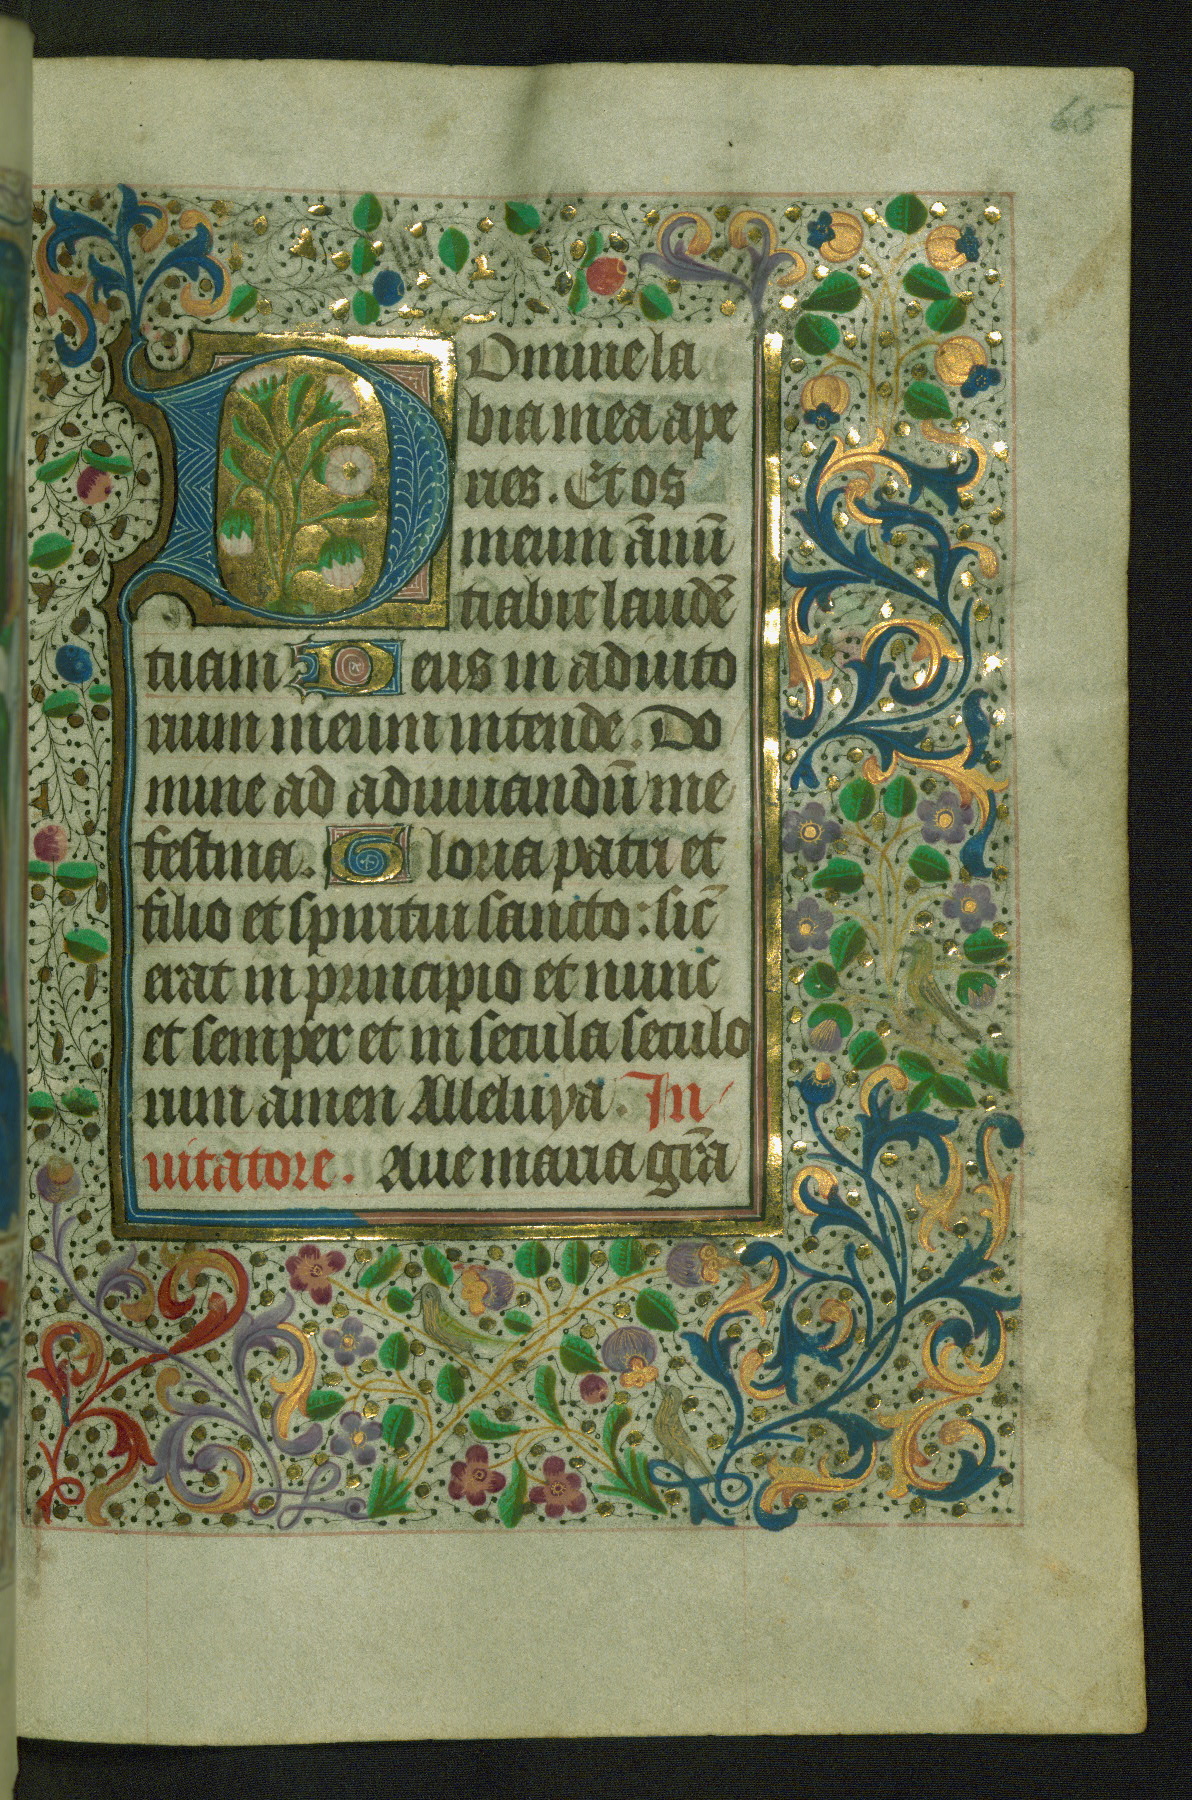 65
DOmine la
bia mea ape
ries. Et os
meum ānūū
tiabit laudē
tuam Deus in adiuto
rium meum intende. Do
mine ad adiuuandū me
festina. Gloria patri et
filio et spiritui sancto: sic̄
erat in principio et nunc
et semper et in secula seculo
rum amen Alleluya. In
uitatore. Aue maria gr̄a